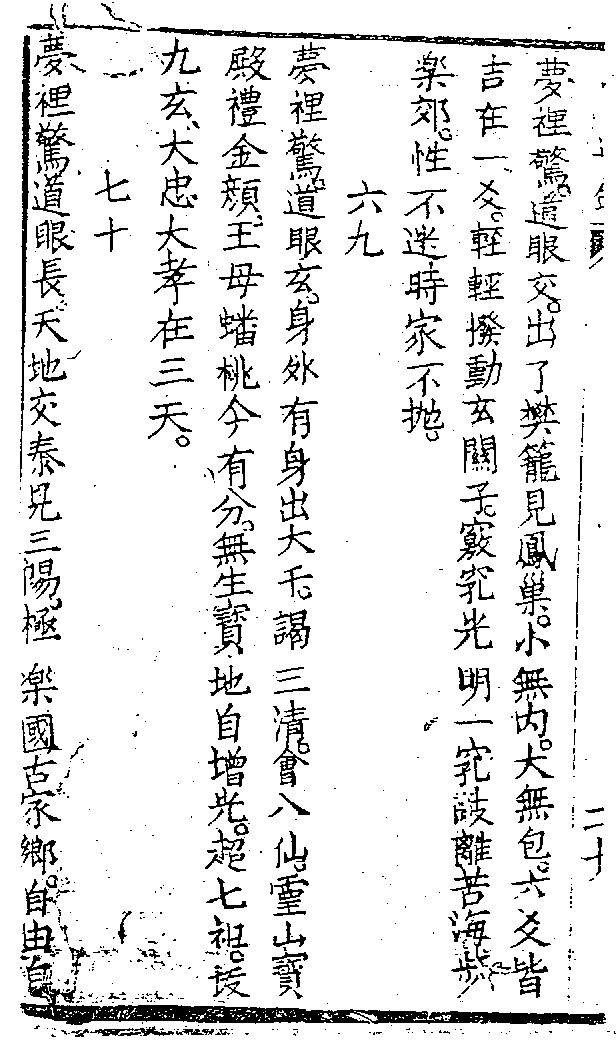 二十
夢裡驚。道眼交。出了樊籠見鳳巢。小無內。大無包。六爻皆
吉在一爻。輕輕撥動玄關子。竅竅光明一竅詖離苦海步
楽郊。性不迷。時家不拋。
六九
夢裡驚。道眼玄。身外有身出大千。謁三清。會八仙。靈山寶
殿禮金顏。王母蟠桃今有分。無生寶地自增光。超七祖。拔
九玄、大忠大孝在三天。
七十
夢裡驚道眼長。天地交泰見三陽。極楽國古家鄉。自由自